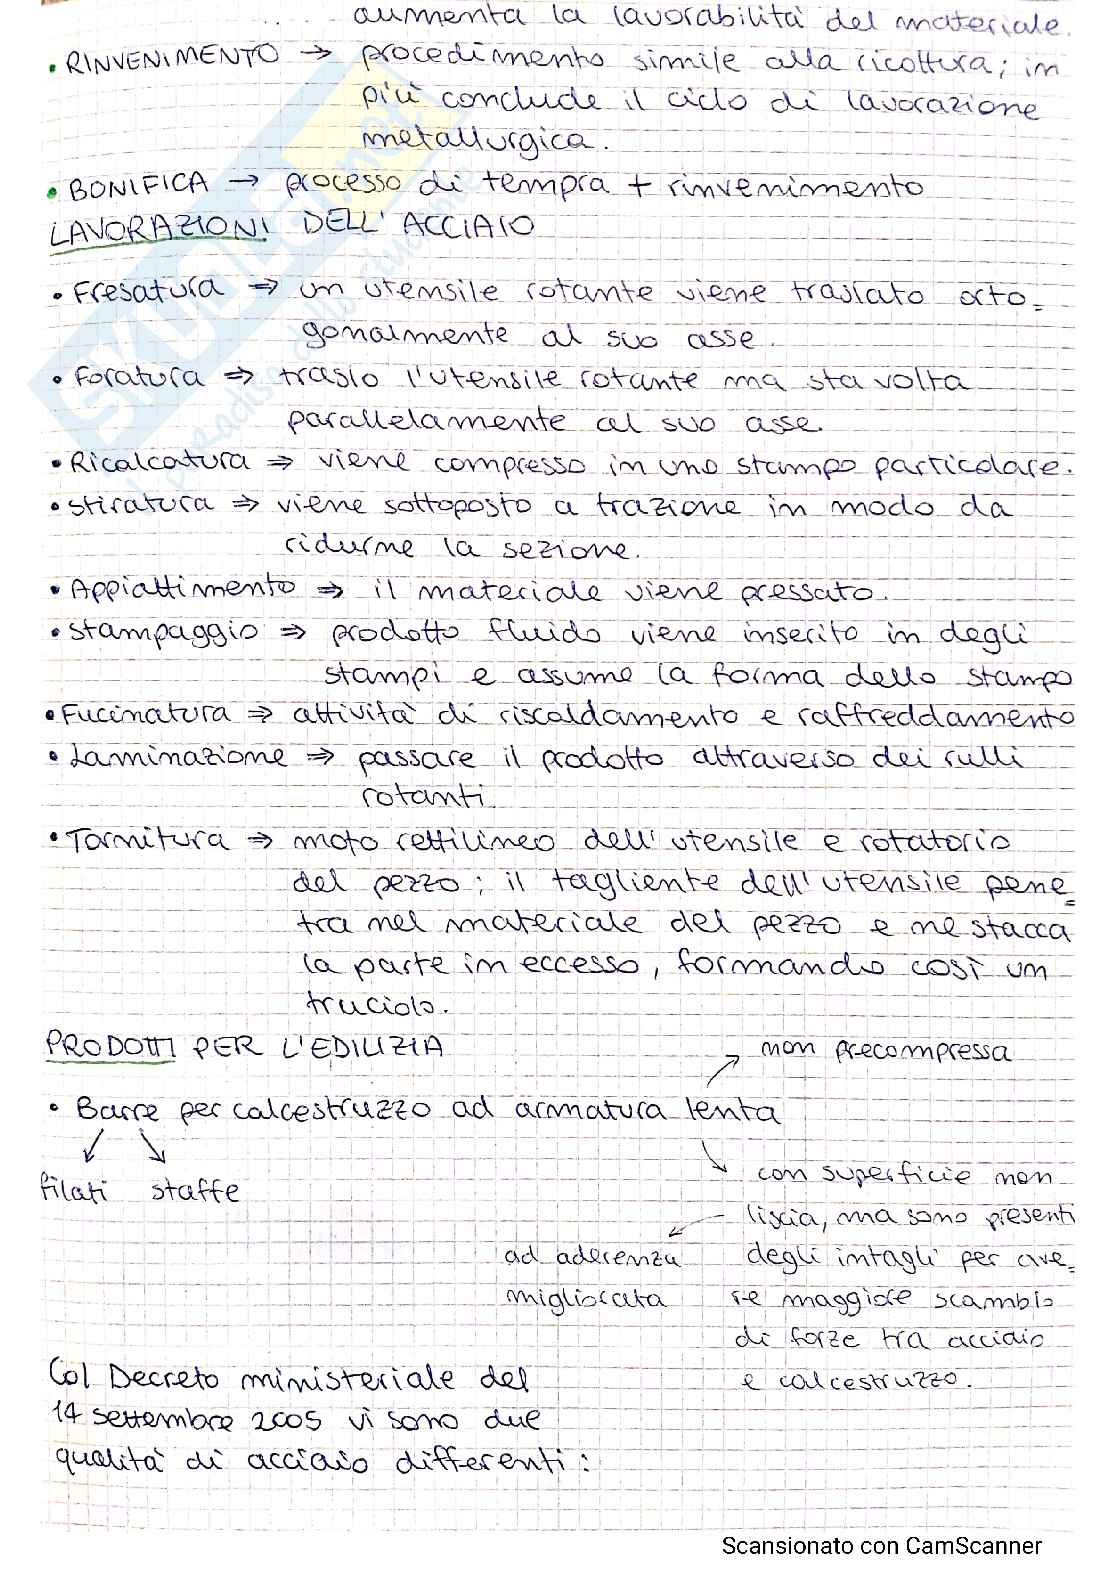 aumenta la lavorabilità del materiale.
• RINVENIMENTO → procedimento simile alla ricottura; in
più conclude il ciclo di lavorazione
metallurgica.
• BONIFICA → processo di tempra + rinvenimento
LAVORAZIONI DELL'ACCIAIO
• Fresatura ⇒ un utensile rotante viene traslato orto=
gonalmente al suo asse.
• Foratura ⇒ traslo l'utensile rotante ma sta volta
parallelamente al suo asse.
• Ricalcatura ⇒ viene compresso in uno stampo particolare.
• Stiratura ⇒ viene sottoposto a trazione in modo da
ridurne la sezione.
• Appiattimento ⇒ il materiale viene pressato.
• Stampaggio ⇒ prodotto fluido viene inserito in degli
stampi e assume la forma dello stampo
• Fucinatura ⇒ attività di riscaldamento e raffreddamento
• Laminazione ⇒ passare il prodotto attraverso dei rulli
rotanti
• Tornitura ⇒ moto rettilineo dell'utensile e rotatorio
del pezzo; il tagliente dell'utensile pene=
tra nel materiale del pezzo e ne stacca
la parte in eccesso, formando così un
truciolo.
PRODOTTI PER L'EDILIZIA
non precompressa
• Barre per calcestruzzo ad armatura lenta
filati staffe
con superficie non
liscia, ma sono presenti
degli intagli per ave=
re maggiore scambio
di forze tra acciaio
e calcestruzzo.
ad aderenza
migliorata
Col Decreto ministeriale del
14 settembre 2005 vi sono due
qualità di acciaio differenti:
SKUOLA.net
Scansionato con CamScanner